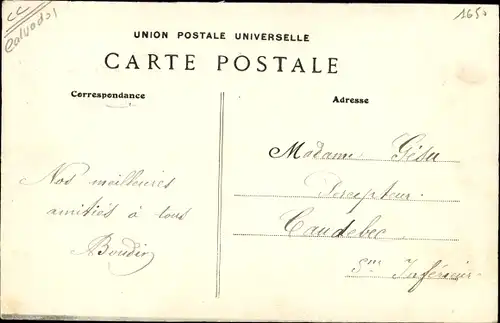 CC
Calvados
1650
UNION POSTALE UNIVERSELLE
CARTE POSTALE
Correspondance
Adresse
Nos meilleures
amitiés à tous
Boudin
Madame Gésu
Percepteur
Caudebec
Sne Inférieure